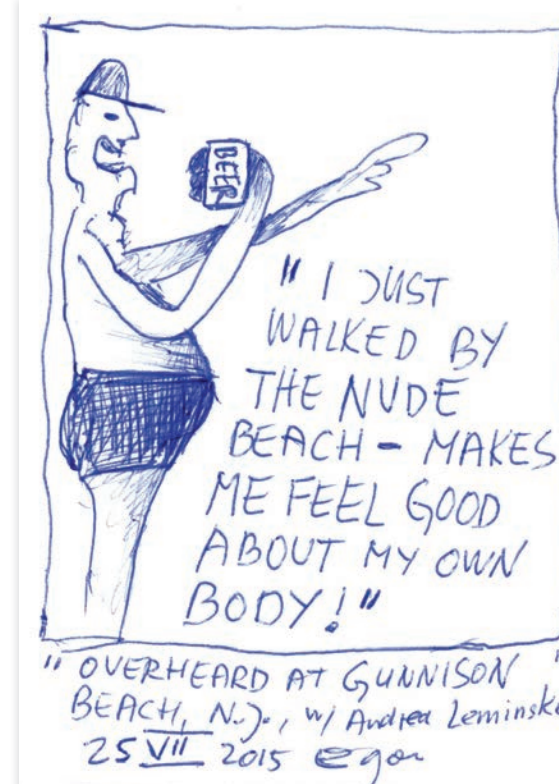 BEER
" I JUST
WALKED BY
THE NUDE
BEACH – MAKES
ME FEEL GOOD
ABOUT MY OWN
BODY! "
" OVERHEARD AT GUNNISON "
BEACH, N.J., w/ Andrea
25 VII 2015 Egon